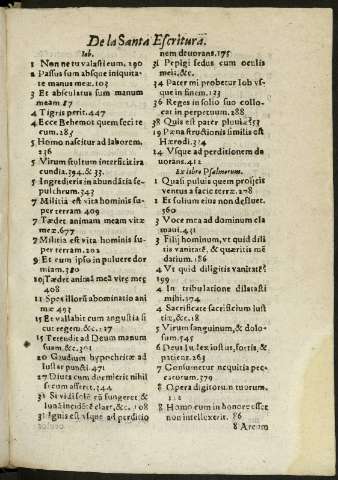 De la Santa Escritura.
Iob.
1 Non ne tu valasti eum. 290
2 Passus sum absque iniquita-
te manus meæ. 103
3 Et absculatus sum manum
meam 87
4 Tigris perit. 447
4 Ecce Behemot quem feci te
cum. 285
5 Homo nascitur ad laborem.
236
5 Virum stultum interficit ira
cundia. 394. & 33.
5 Ingredieris in abundãtia se-
pulchrum. 343
7 Militia est vita hominis su-
per terram 409
7 Tædet animam meam vitæ
meæ. 677
7 Militia est vita hominis su
per terram. 202
9 Et cum ipso in puluere dor
miam. 380
10 Tædet animã meã vitę meę
408
11 Spes illorũ abominatio ani
mæ 493
15 Et vallabit eum angustia si
cut regem. &c. 127
15 Tetendit ad Deum manum
suam, &c. 301
20 Gaudium hypochritæ ad
instar puncti 471
27 Diues cum dormierit nihil
secum afferit. 344
31 Si vidi solẽ cũ fungeret &
lunã incidẽtẽ clarè, &c. 108
31 Ignis est vsque ad perditio
nem deuorans. 175
31 Pepigi fedus cum oculis
meis. &c.
34 Pater mi probetur Iob vs-
que in finem. 133
36 Reges in solio suo collo-
cat in perpetuum. 288
38 Quis est pater pluuiæ? 53
19 Pæna structionis similis est
Hærodi. 314
14 Vsque ad perditionem de
uorans. 412
Ex libro Psalmorum.
1 Quasi puluis quem proijcit
ventus a facie terræ. 278
2 Et folium eius non defluet
360
3 Voce mea ad dominum cla
maui. 431
3 Filij hominum, vt quid dili
tis vanitatẽ, & quæritis mẽ
datium. 186
4 Vt quid diligitis vanitatẽ?
199
4 In tribulatione dilatasti
mihi. 174
4 Sacrificate sacrificium iust
tiæ, &c. 18
5 Virum sanguinum, & dolo-
sum. 745
6 Deus Iudex iustus, fortis, &
patiens. 263
7 Consumetur nequitia pec-
catorum. 379
8 Opera digitorum tuorum.
8 Homo cum in honore esset
non intellexerit. 86
8 Arcum